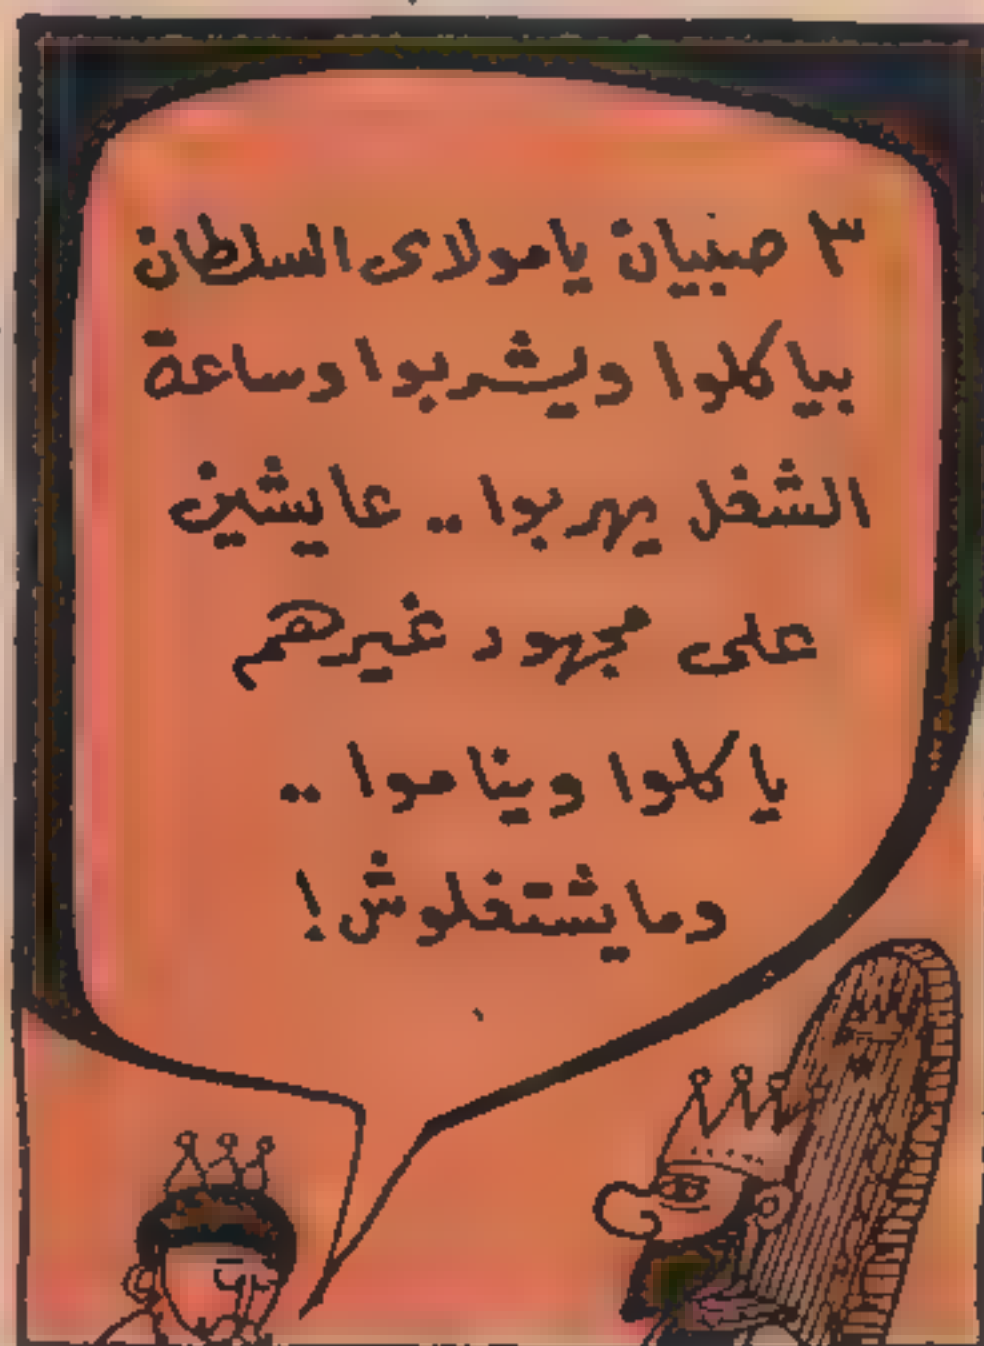 ٣ صبيان يا مولاى السلطان
بياكلوا ويشربوا وساعة
الشغل يهربوا .. عايشين
على مجهود غيرهم
ياكلوا ويناموا ..
ومايشتغلوش !